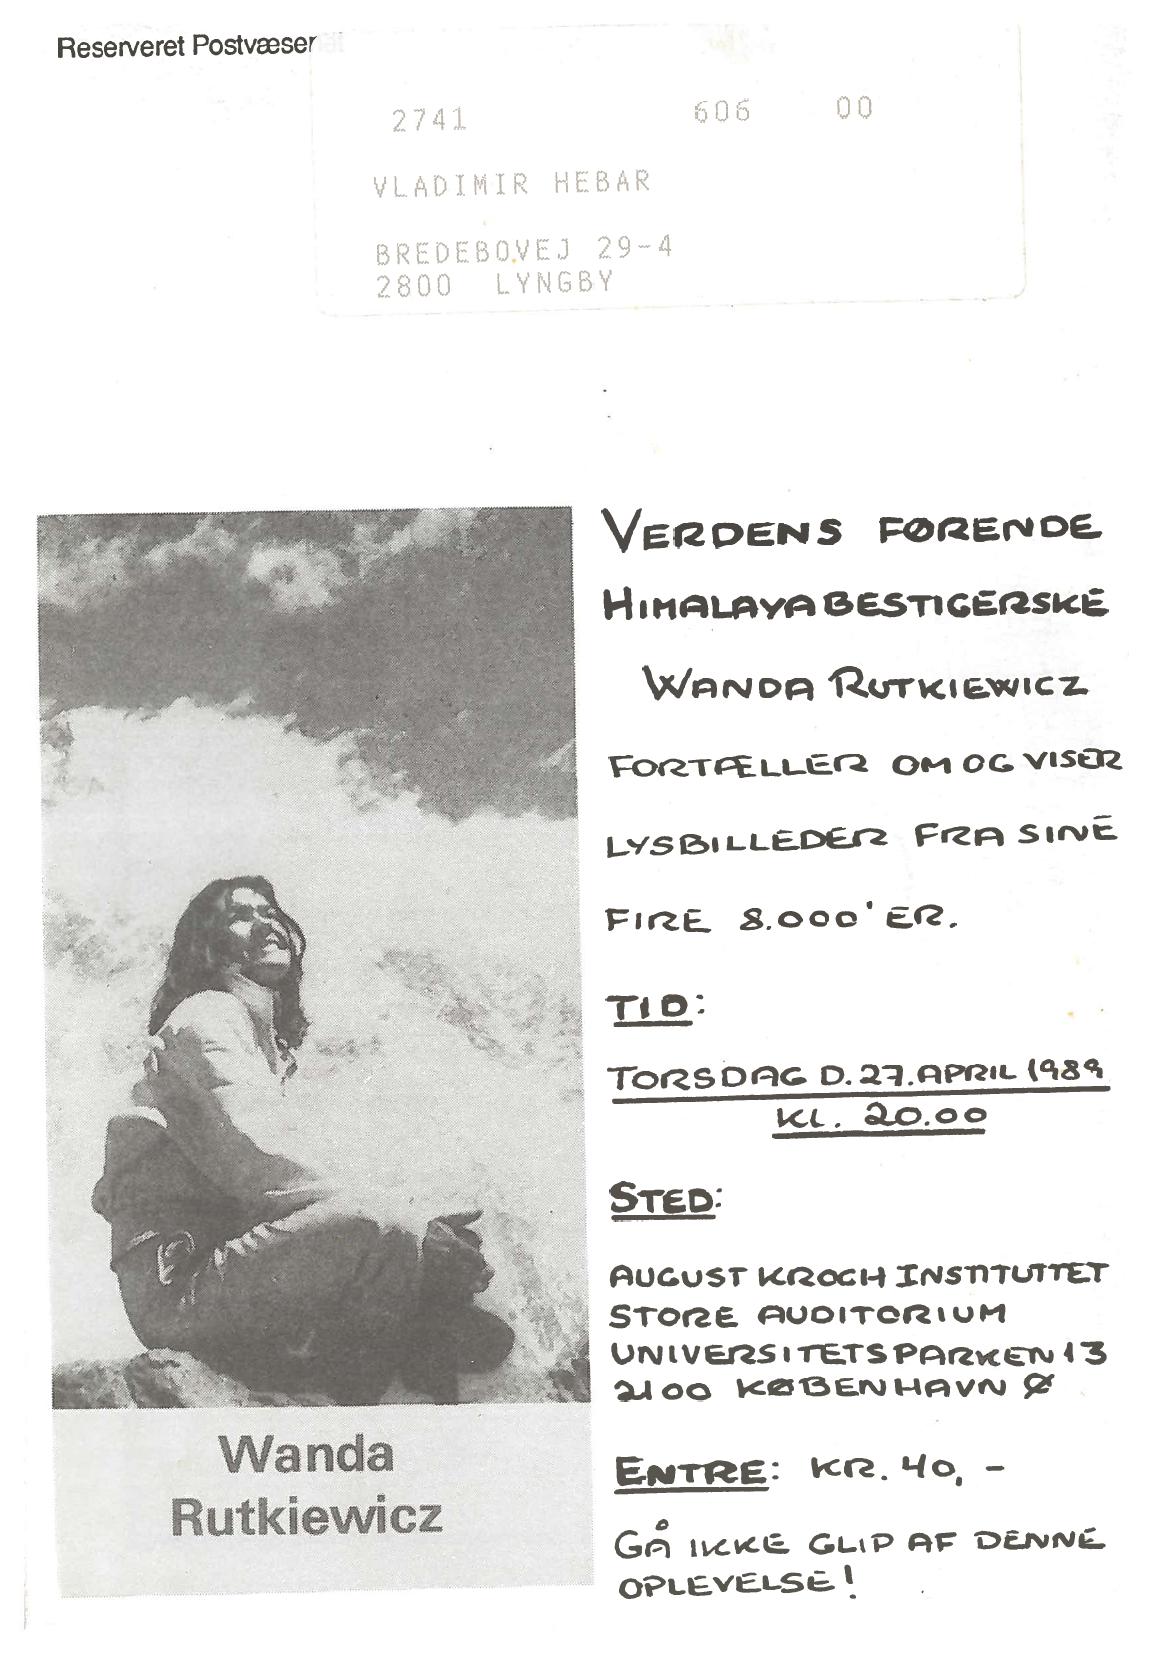 Reserveret Postvæser
2741 606 00
VLADIMIR HEBAR
BREDEBOVEJ 29-4
2800 LYNGBY
VERDENS FØRENDE
HIMALAYABESTIGERSKE
WANDA RUTKIEWICZ
FORTÆLLER OM OG VISER
LYSBILLEDER FRA SINE
FIRE 8.000'ER.
TID:
TORSDAG D. 27. APRIL 1989
KL. 20.00
STED:
AUGUST KROGH INSTITUTTET
STORE AUDITORIUM
UNIVERSITETSPARKEN 13
2100 KØBENHAVN Ø
ENTRE: KR. 40,-
GÅ IKKE GLIP AF DENNE
OPLEVELSE!
Wanda
Rutkiewicz